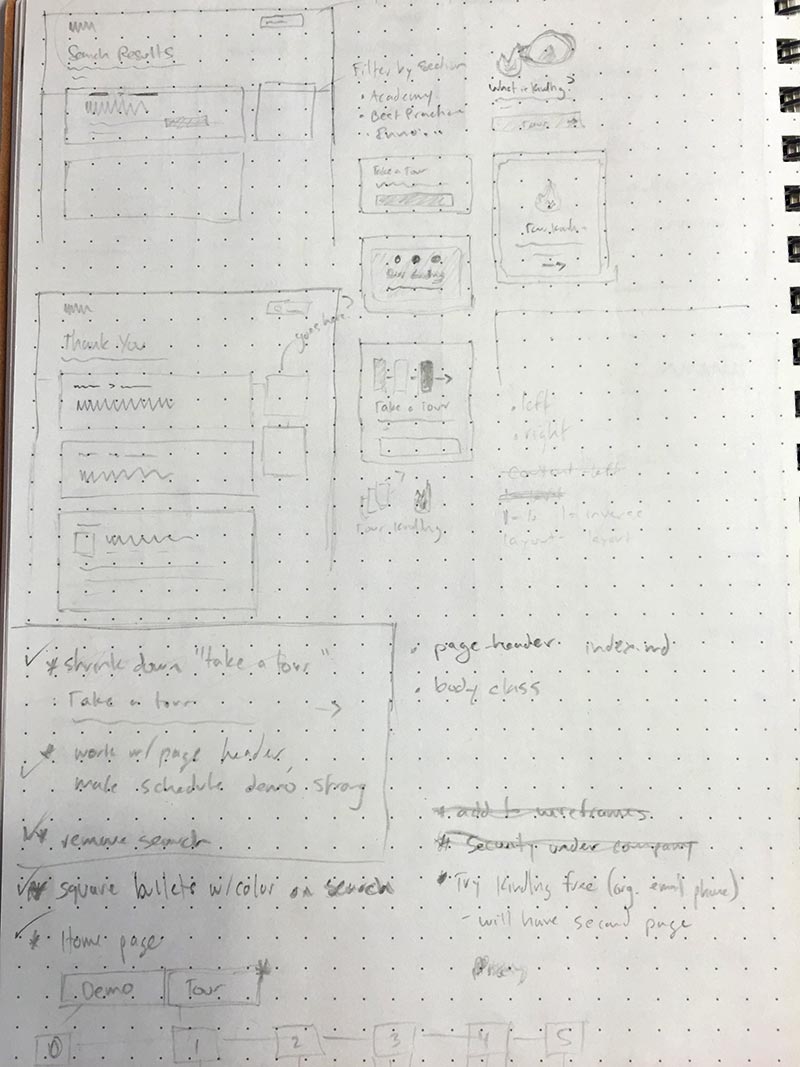 Search Results
Filter by section
• Academy
• Best Practices
What is Kindling?
Tour
Take a Tour
Tour Kindling
Our Kindling
Thank You
goes here
Take a Tour
Tour Kindling
• left
• right
Content left
to inverse
layout - layout
* shrink down "take a tour"
Take a tour
* work w/ page header,
make schedule demo strong
* remove search
* square bullets w/color on search
* Home page
Demo Tour
0 1 2 3 4 5
• page-header index.md
• body class
* add to wireframes
* Security under company
* Try Kindling free (org. email phone)
- will have second page